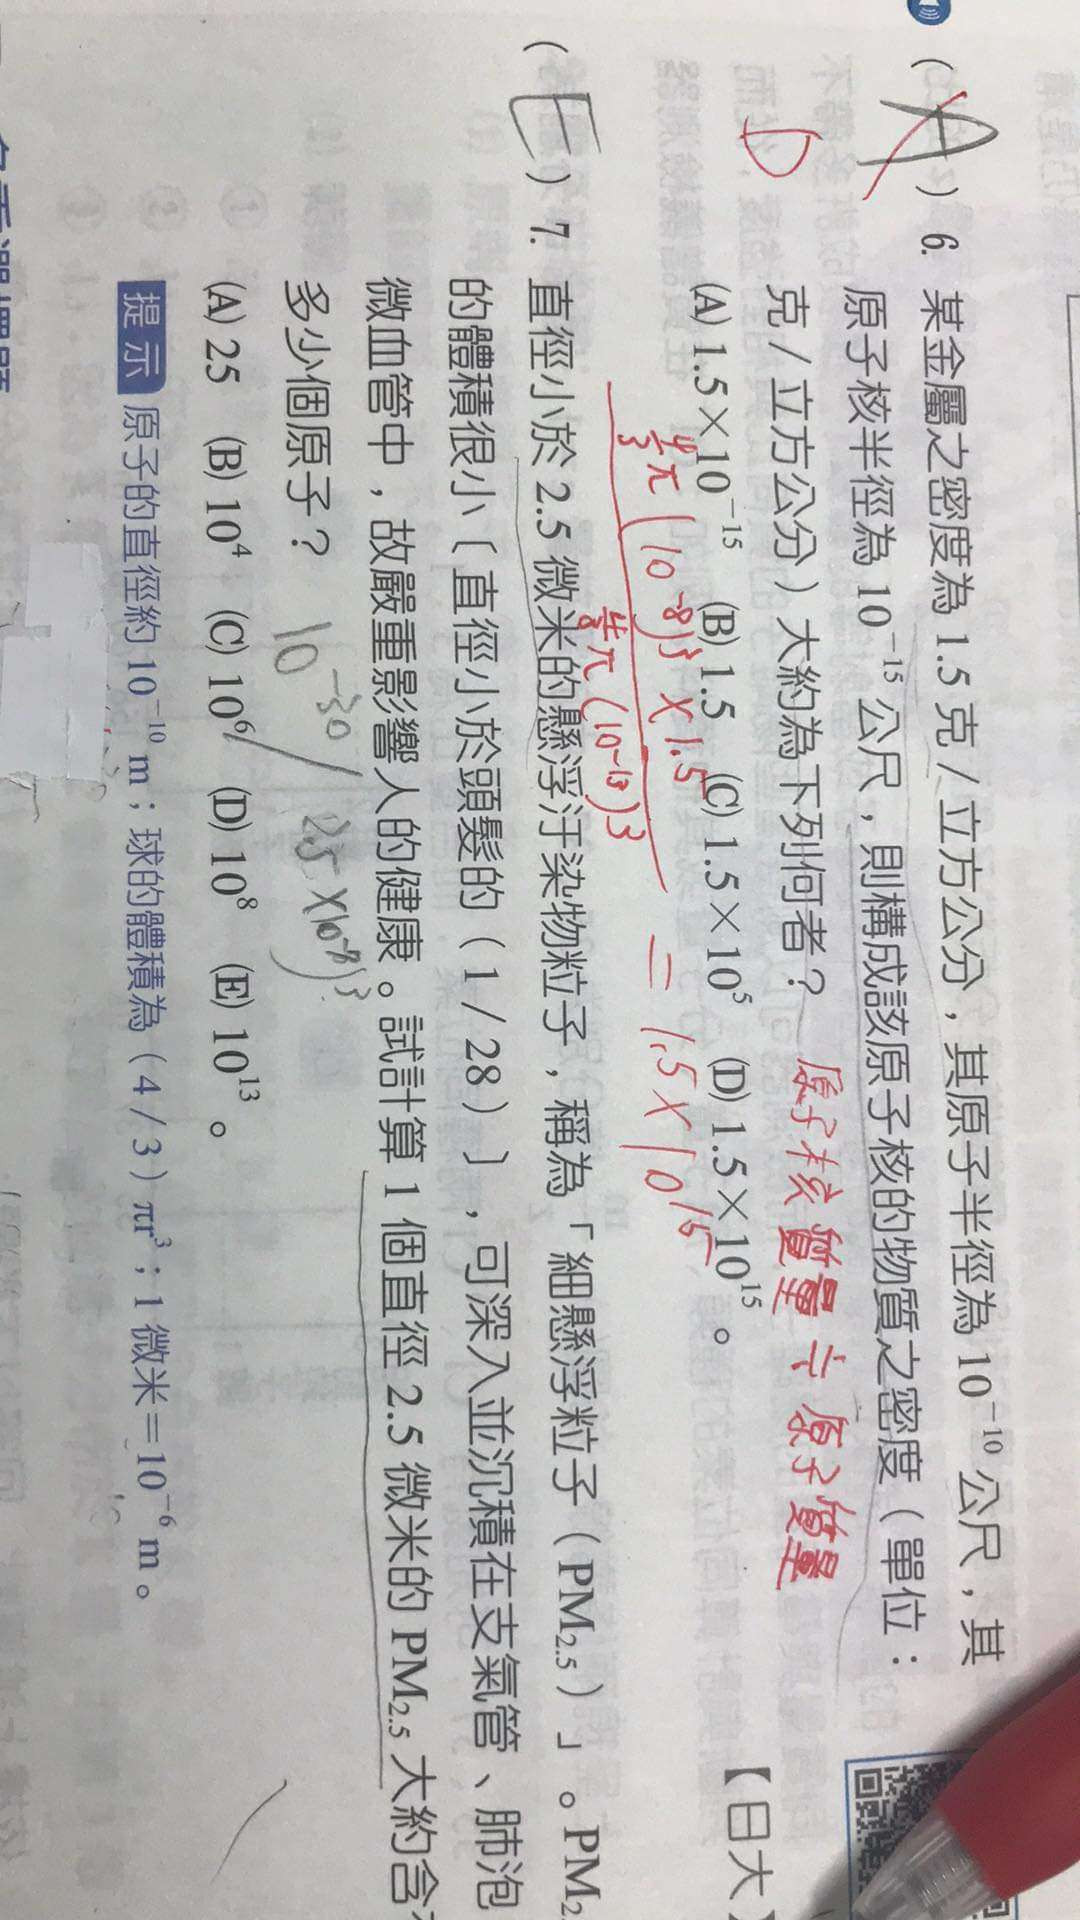 (A) 6. 某金屬之密度為 1.5 克/立方公分，其原子半徑為 10⁻¹⁰ 公尺，其
D 原子核半徑為 10⁻¹⁵ 公尺，則構成該原子核的物質之密度（單位：
克/立方公分）大約為下列何者？ 原子核質量≒原子質量
【日大】
(A) 1.5×10⁻¹⁵ (B) 1.5 (C) 1.5×10⁵ (D) 1.5×10¹⁵。
4/3 π (10⁻⁸)³ × 1.5
4/3 π (10⁻¹³)3
= 1.5×10¹⁵
(E) 7. 直徑小於 2.5 微米的懸浮汙染物粒子，稱為「細懸浮粒子（PM₂.₅）」。PM₂.
的體積很小〔直徑小於頭髮的（1/28）〕，可深入並沉積在支氣管、肺泡
微血管中，故嚴重影響人的健康。試計算 1 個直徑 2.5 微米的 PM₂.₅ 大約含
多少個原子？ 10⁻³⁰/(25×10⁻⁸)³
(A) 25 (B) 10⁴ (C) 10⁶ (D) 10⁸ (E) 10¹³。
提示 原子的直徑約 10⁻¹⁰ m；球的體積為（4/3）πr³；1 微米＝10⁻⁶ m。